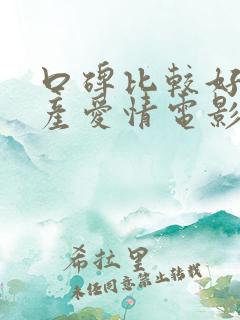 口碑比較好
產愛情電影
希拉里
未任同意禁止轉載